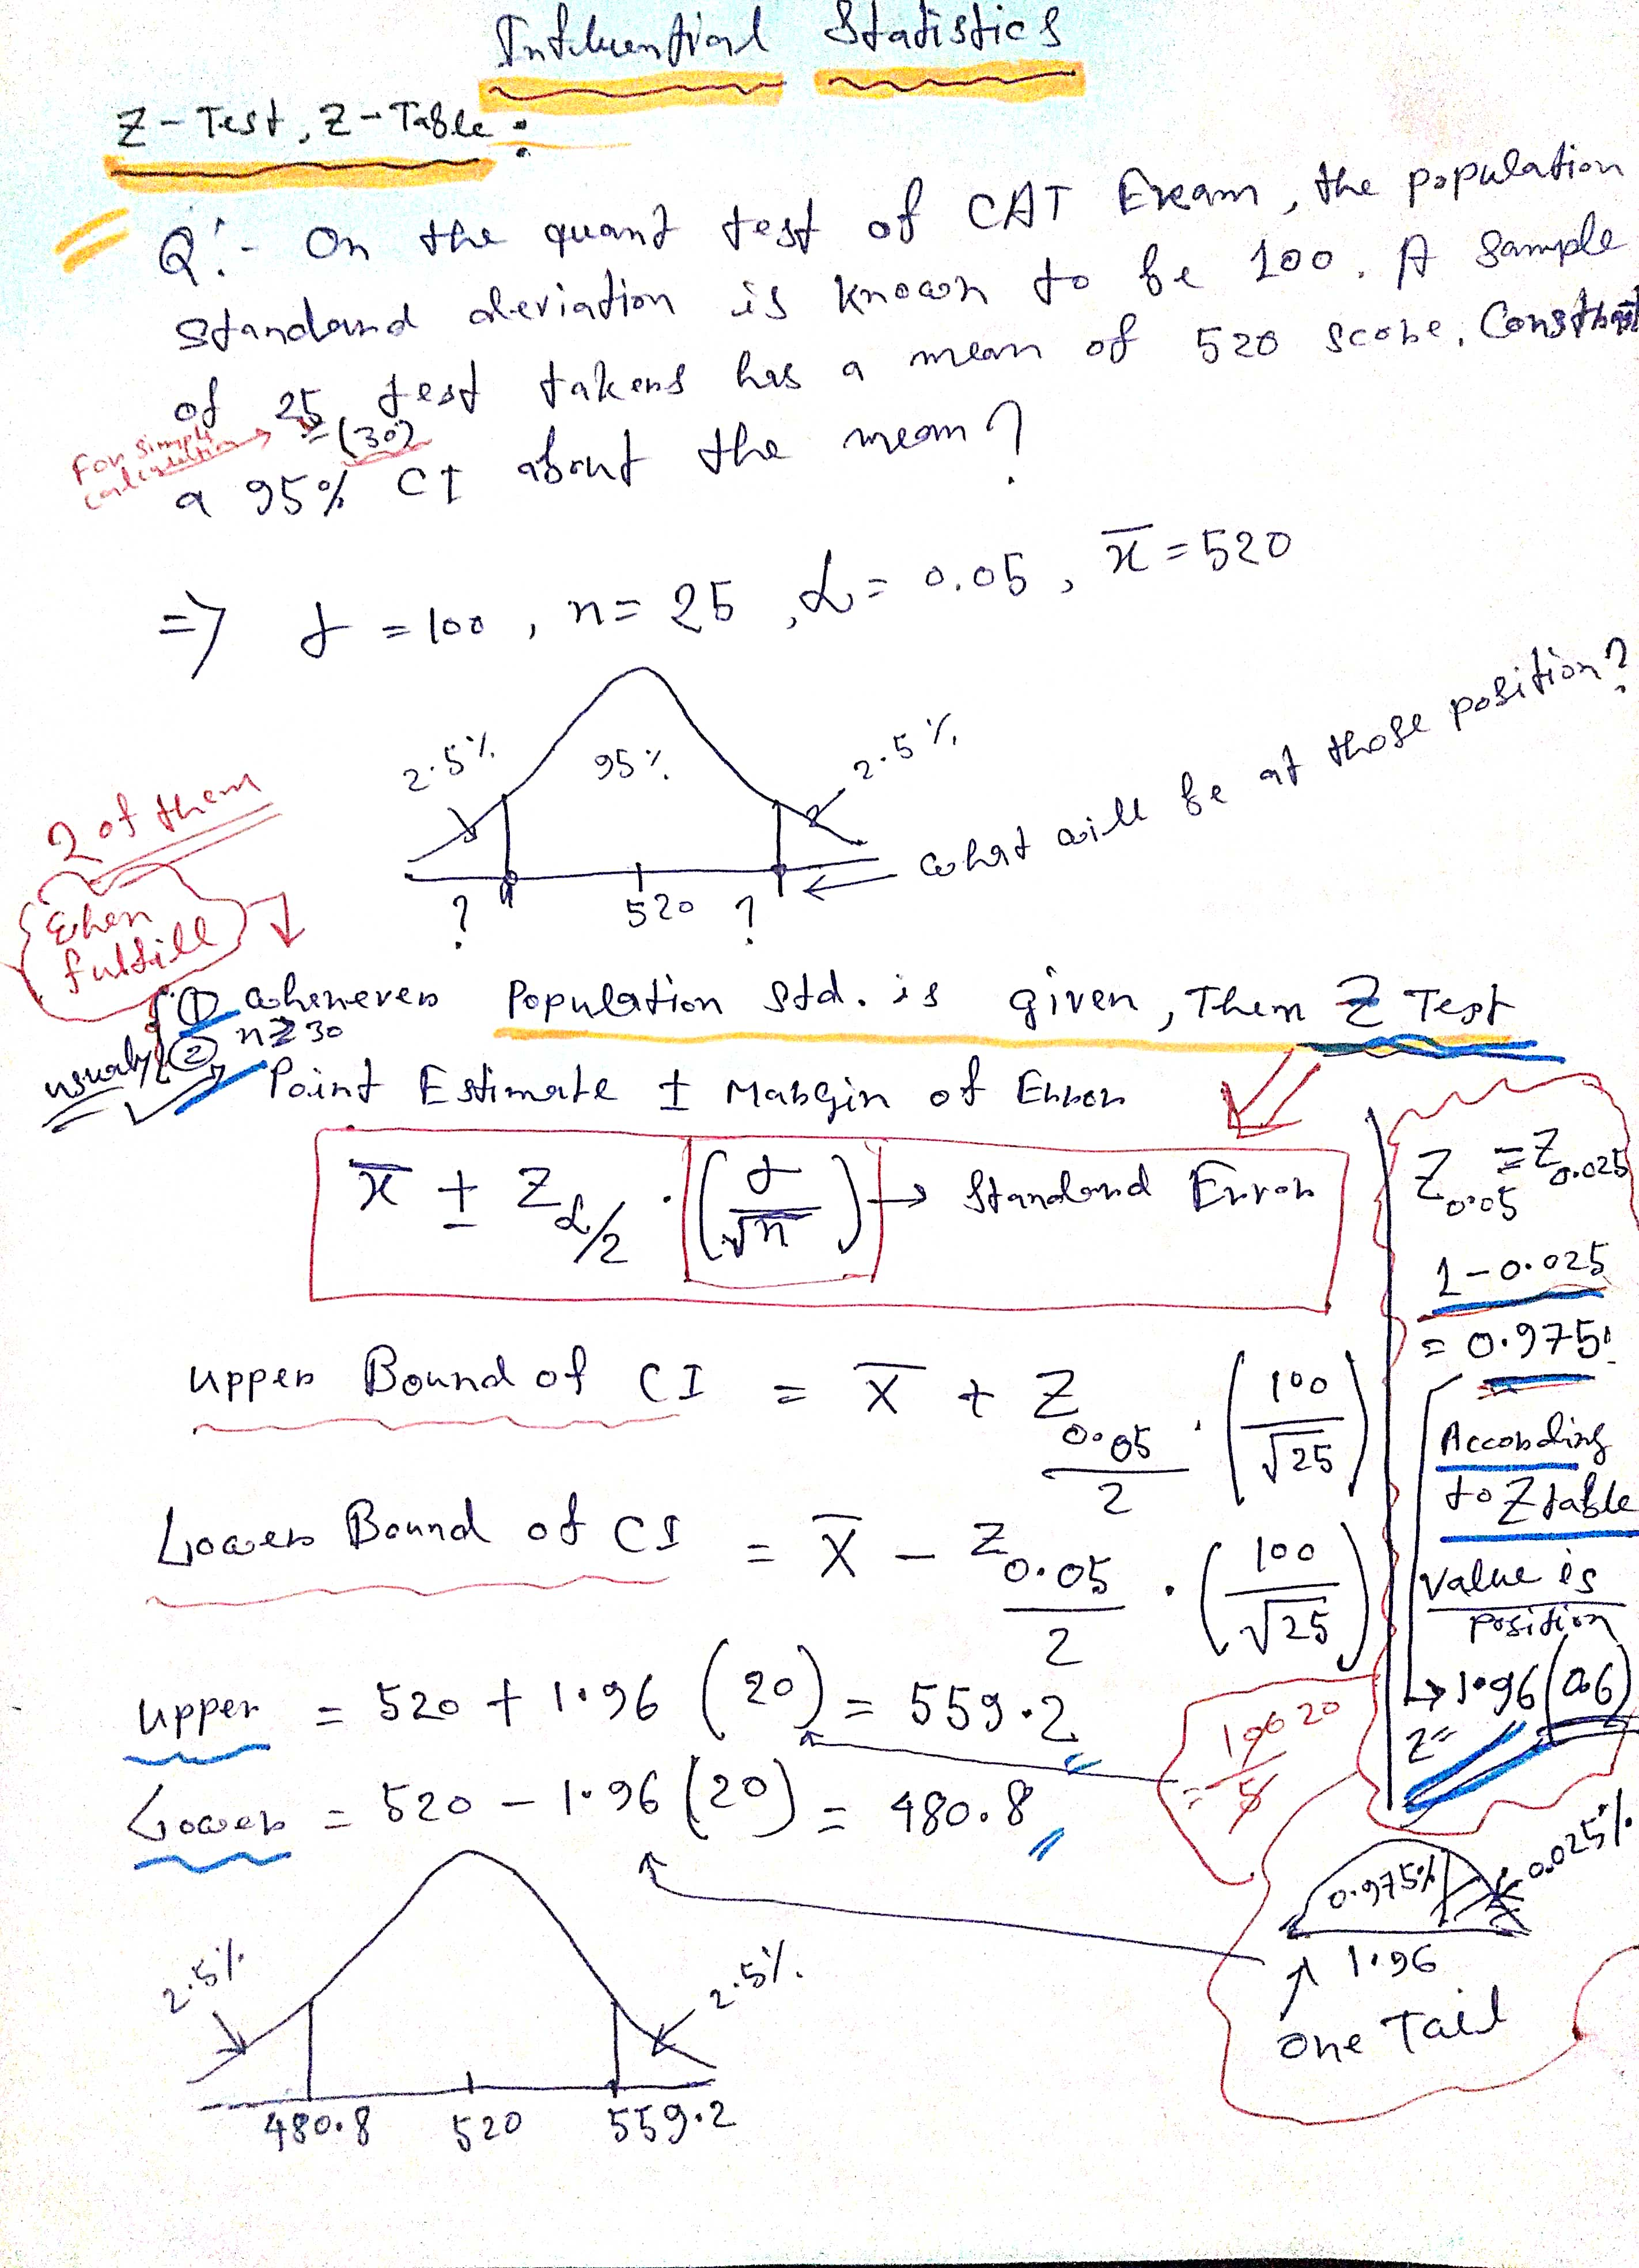 Inferential Statistics
Z-Test, Z-Table:
Q:- On the quant test of CAT Exam, the population
standard deviation is known to be 100. A sample
of 25 test takers has a mean of 520 score. Construct
For simple calculation → ≃ (30)
a 95% CI about the mean?
⇒ σ = 100, n = 25, α = 0.05, x̄ = 520
2.5% 95% 2.5%
? 520 ?
← What will be at those position?
2 of them
When
fulfill
① Whenever Population Std. is given, Then Z Test
usually ② n ≥ 30
Point Estimate ± Margin of Error
x̄ ± Z α/2 · (σ/√n) → Standard Error
Upper Bound of CI = x̄ + Z 0.05/2 · (100/√25)
Lower Bound of CI = x̄ - Z 0.05/2 · (100/√25)
Upper = 520 + 1.96 (20) = 559.2
Lower = 520 - 1.96 (20) = 480.8
= 100/5 20
Z 0.05 = Z 0.025
1-0.025
= 0.975
According
to Z table
value is
position
→ 1.96
Z=
0.975% 0.025%
1.96
One Tail
2.5% 2.5%
480.8 520 559.2